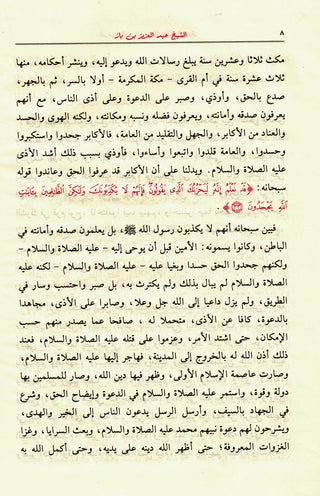 ٨
الشيخ عبد العزيز بن باز
مكث ثلاثا وعشرين سنة يبلغ رسالات الله ويدعو إليه، وينشر أحكامه، منها
ثلاث عشرة سنة في أم القرى - مكة المكرمة - أولا بالسر، ثم بالجهر،
صدع بالحق، وأوذي، وصبر على الدعوة وعلى أذى الناس، مع أنهم
يعرفون صدقه وأمانته، ويعرفون فضله ونسبه ومكانته، ولكنه الهوى والحسد
والعناد من الأكابر، والجهل والتقليد من العامة، فالأكابر جحدوا واستكبروا
وحسدوا، والعامة قلدوا واتبعوا وأساءوا، فأوذي بسبب ذلك أشد الأذى
عليه الصلاة والسلام. ويدلنا على أن الأكابر قد عرفوا الحق وعاندوا قوله
سبحانه: ﴿قَدْ نَعْلَمُ إِنَّهُ لَيَحْزُنُكَ الَّذِي يَقُولُونَ فَإِنَّهُمْ لَا يُكَذِّبُونَكَ وَلَكِنَّ الظَّالِمِينَ بِآيَاتِ
اللَّهِ يَجْحَدُونَ ٣٣﴾
فبين سبحانه أنهم لا يكذبون رسول الله ﷺ، بل يعلمون صدقه وأمانته في
الباطن، وكانوا يسمونه: الأمين قبل أن يوحى إليه - عليه الصلاة والسلام-
ولكنهم جحدوا الحق حسدا وبغيا عليه - عليه الصلاة والسلام - لكنه عليه
الصلاة والسلام لم يبال بذلك ولم يكترث به، بل صبر واحتسب وسار في
الطريق، ولم يزل داعيا إلى الله جل وعلا، وصابرا على الأذى، مجاهدا
بالدعوة، كافا عن الأذى، متحملا له ، صافحا عما يصدر منهم حسب
الإمكان، حتى اشتد الأمر، وعزموا على قتله عليه الصلاة والسلام، فعند
ذلك أذن الله له بالخروج إلى المدينة، فهاجر إليها عليه الصلاة والسلام،
وصارت عاصمة الإسلام الأولى، وظهر فيها دين الله، وصار للمسلمين بها
دولة وقوة، واستمر عليه الصلاة والسلام في الدعوة وإيضاح الحق، وشرع
في الجهاد بالسيف، وأرسل الرسل يدعون الناس إلى الخير والهدى،
ويشرحون لهم دعوة نبيهم محمد عليه الصلاة والسلام، وبعث السرايا، وغزا
الغزوات المعروفة؛ حتى أظهر الله دينه على يديه، وحتى أكمل الله به